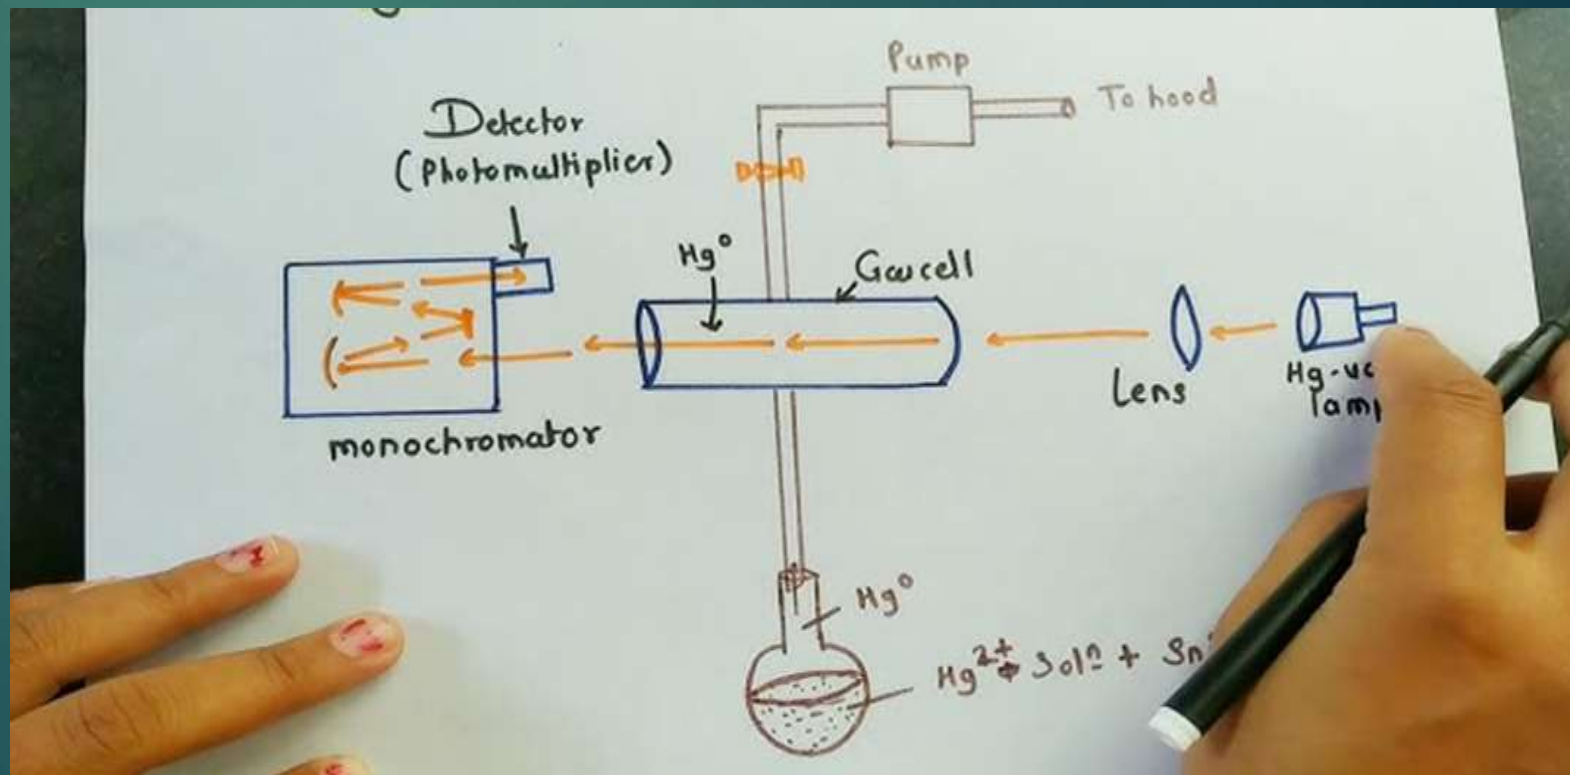 Pump
To hood
Detector
(Photomultiplier)
Hg°
Gas cell
Lens
Hg-
monochromator
Hg°
Hg²⁺ Solⁿ + Sn